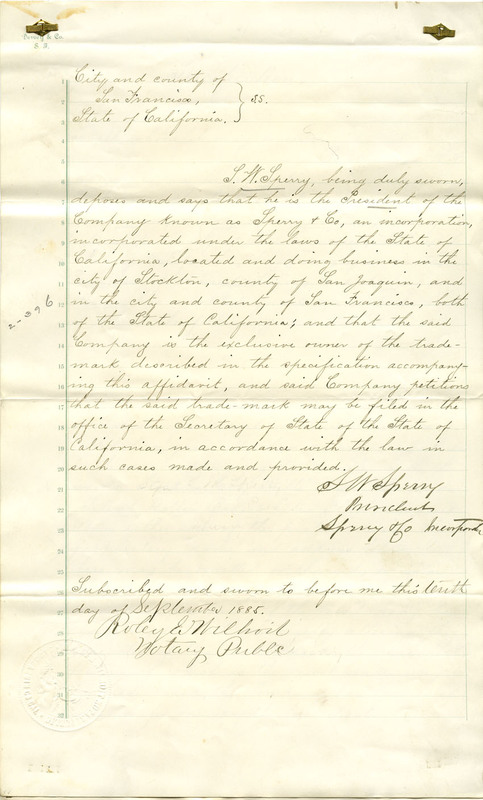 City and county of
San Francisco, } ss.
State of California.
S. W. Sperry, being duly sworn,
deposes and says that he is the President of the
Company known as Sperry & Co, an incorporation,
incorporated under the laws of the State of
California, located and doing business in the
city of Stockton, county of San Joaquin, and
in the city and county of San Francisco, both
of the State of California; and that the said
Company is the exclusive owner of the trade-
mark described in the specification accompany-
ing this affidavit, and said Company petitions
that the said trade-mark may be filed in the
office of the Secretary of State of the State of
California, in accordance with the law in
such cases made and provided.
S W Sperry
President
Sperry & Co
Subscribed and sworn to before me this tenth
day of September 1885.
Notary Public